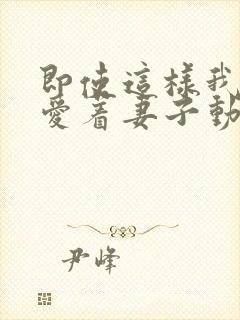 即使這樣我
愛着妻子動
尹峰